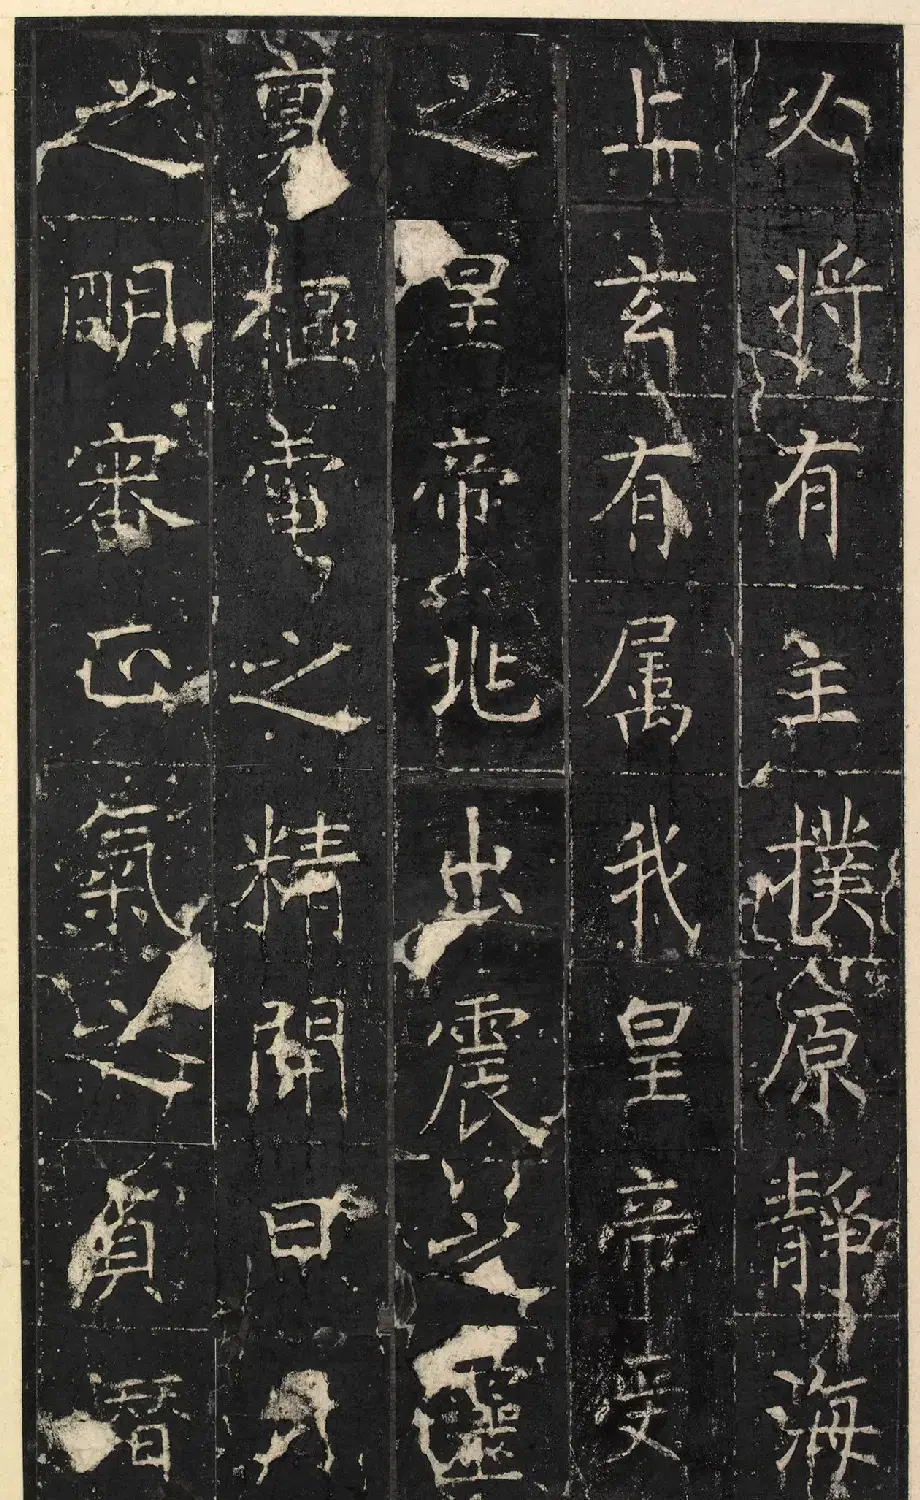 必將有主撲原靜海
上玄有属我皇帝受
之皇帝兆出震之靈
樞電之精開日月
之明審正氣之貞暦